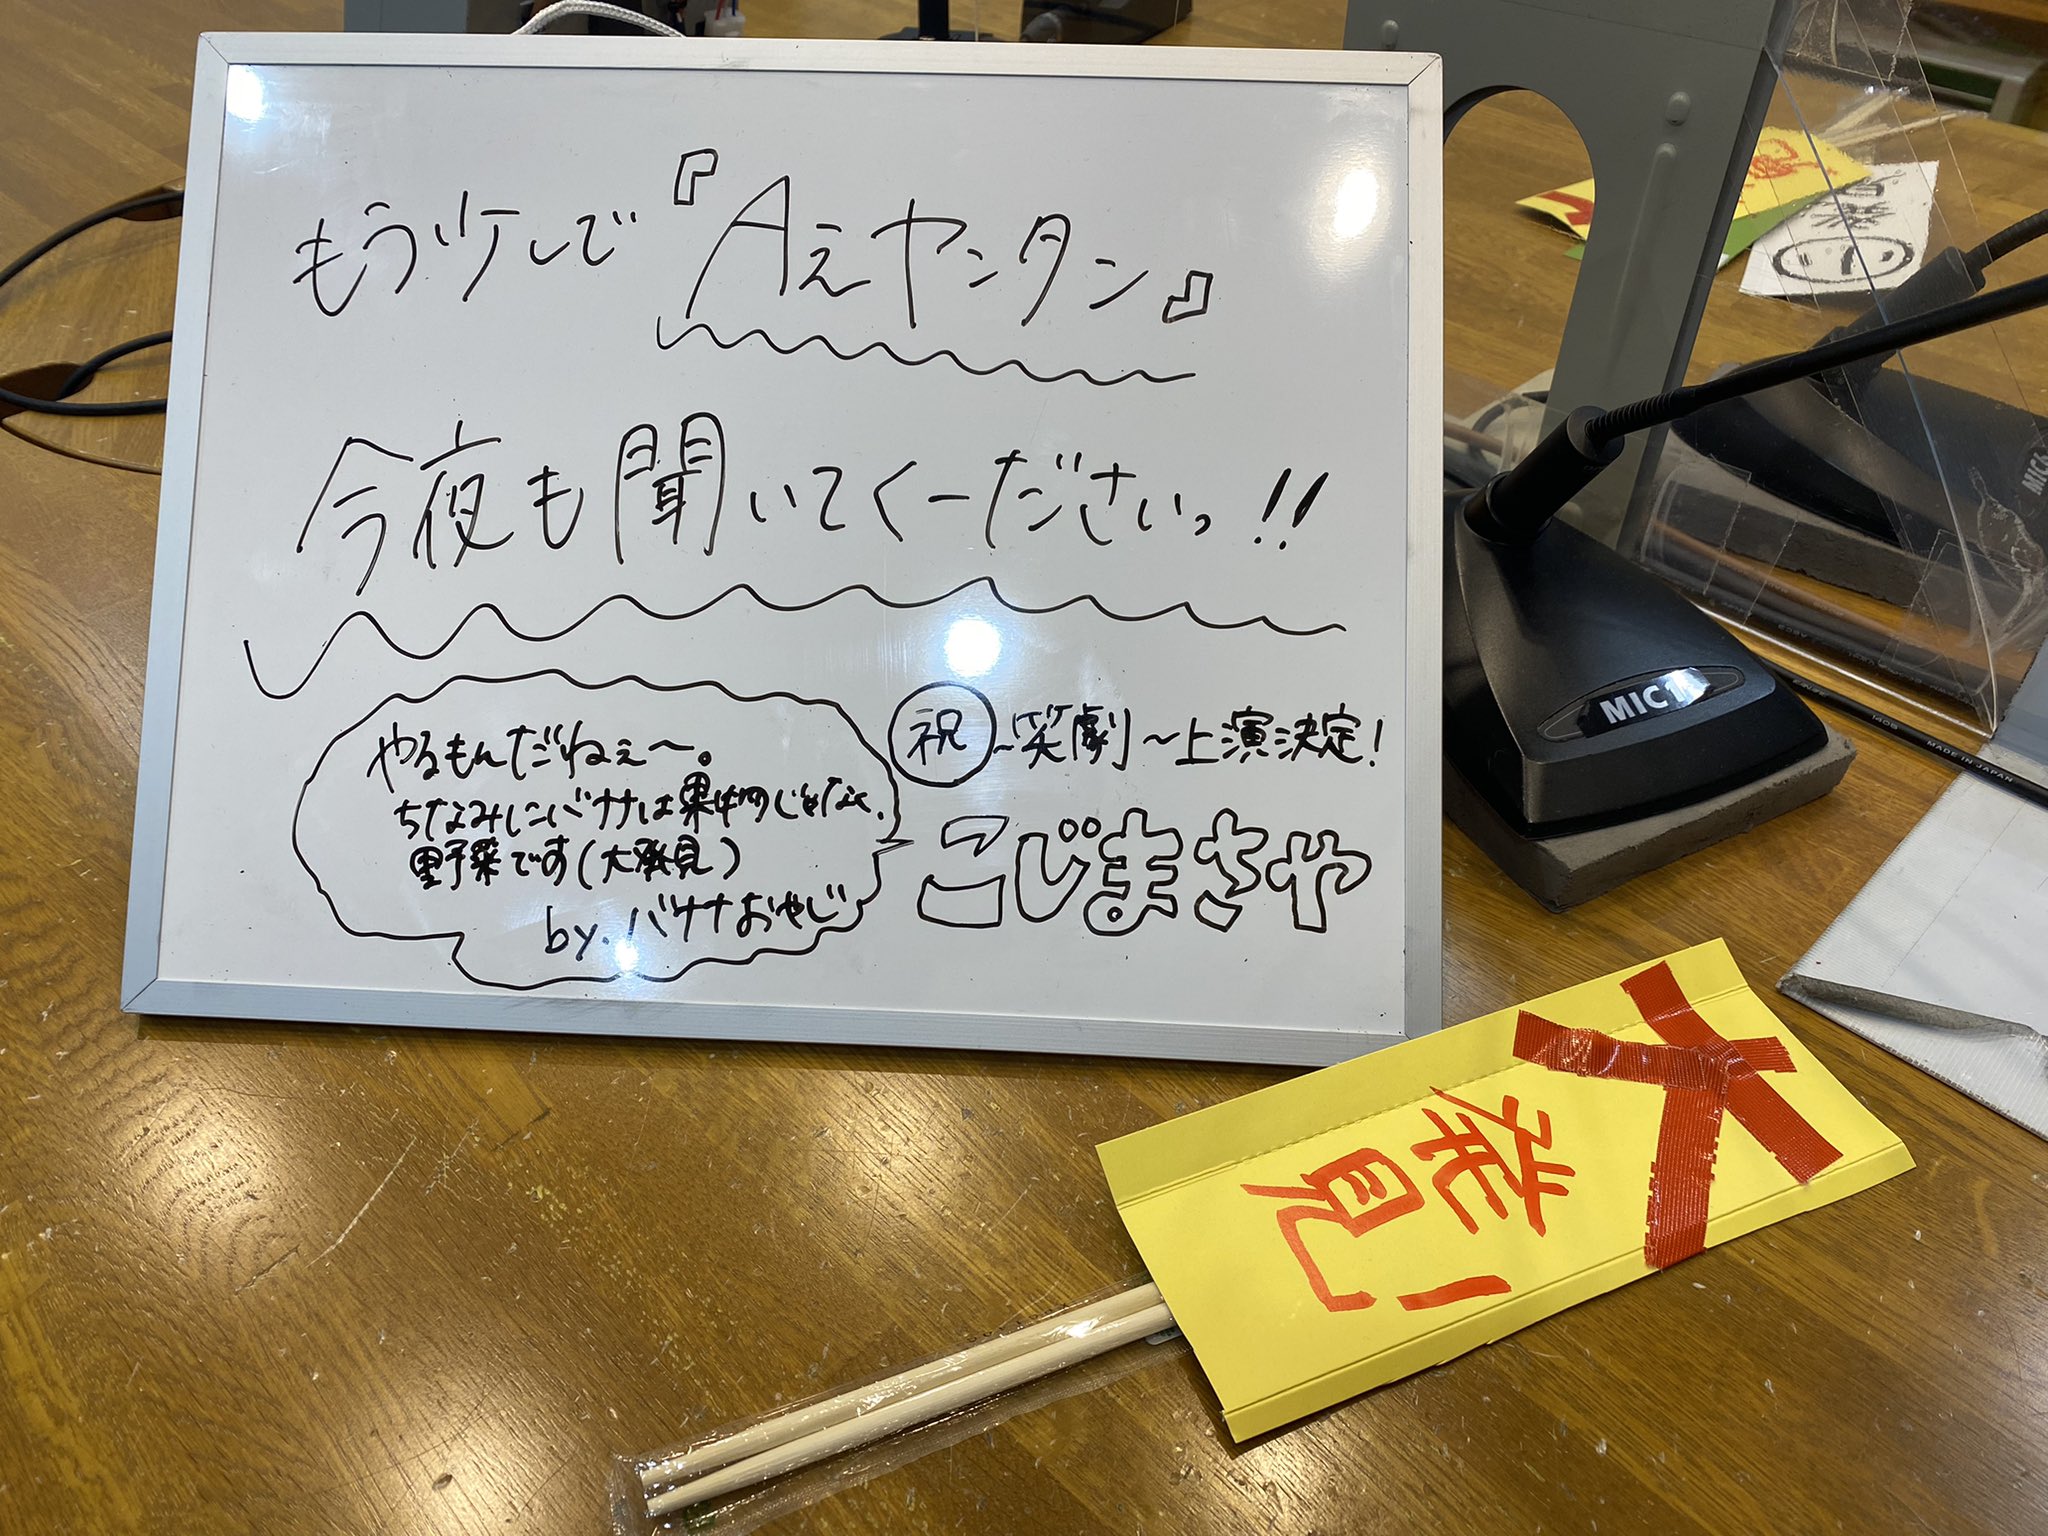 もう少しで『Aぇヤンタン』
今夜も聞いてくーださいっ!!
やるもんだねぇ〜。
ちなみにバナナは果物じゃなく、
野菜です(大発見)
by.バナナおやじ
祝 〜笑劇〜上演決定!
こじまさや
MIC1
MADE IN JAPAN
大発見!